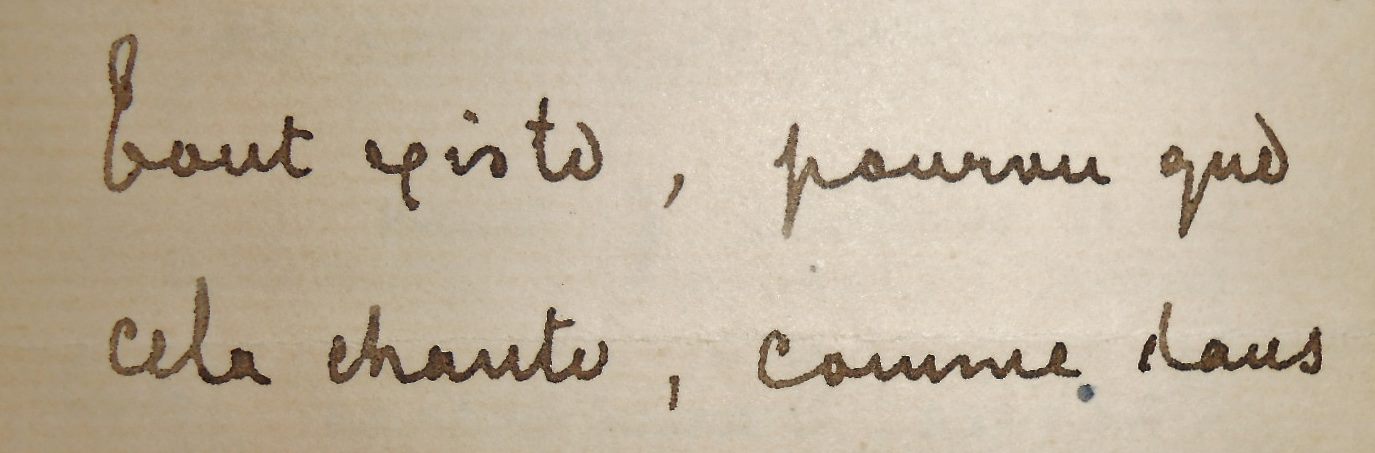 tout existe, pourvu que
cela chante, comme dans